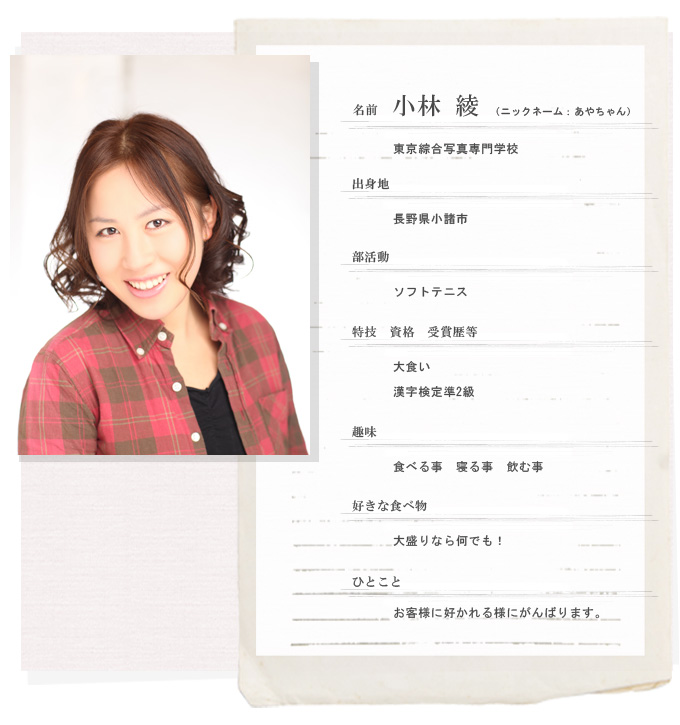 名前 小林 綾 （ニックネーム：あやちゃん）
東京綜合写真専門学校
出身地
長野県小諸市
部活動
ソフトテニス
特技 資格 受賞歴等
大食い
漢字検定準2級
趣味
食べる事 寝る事 飲む事
好きな食べ物
大盛りなら何でも！
ひとこと
お客様に好かれる様にがんばります。